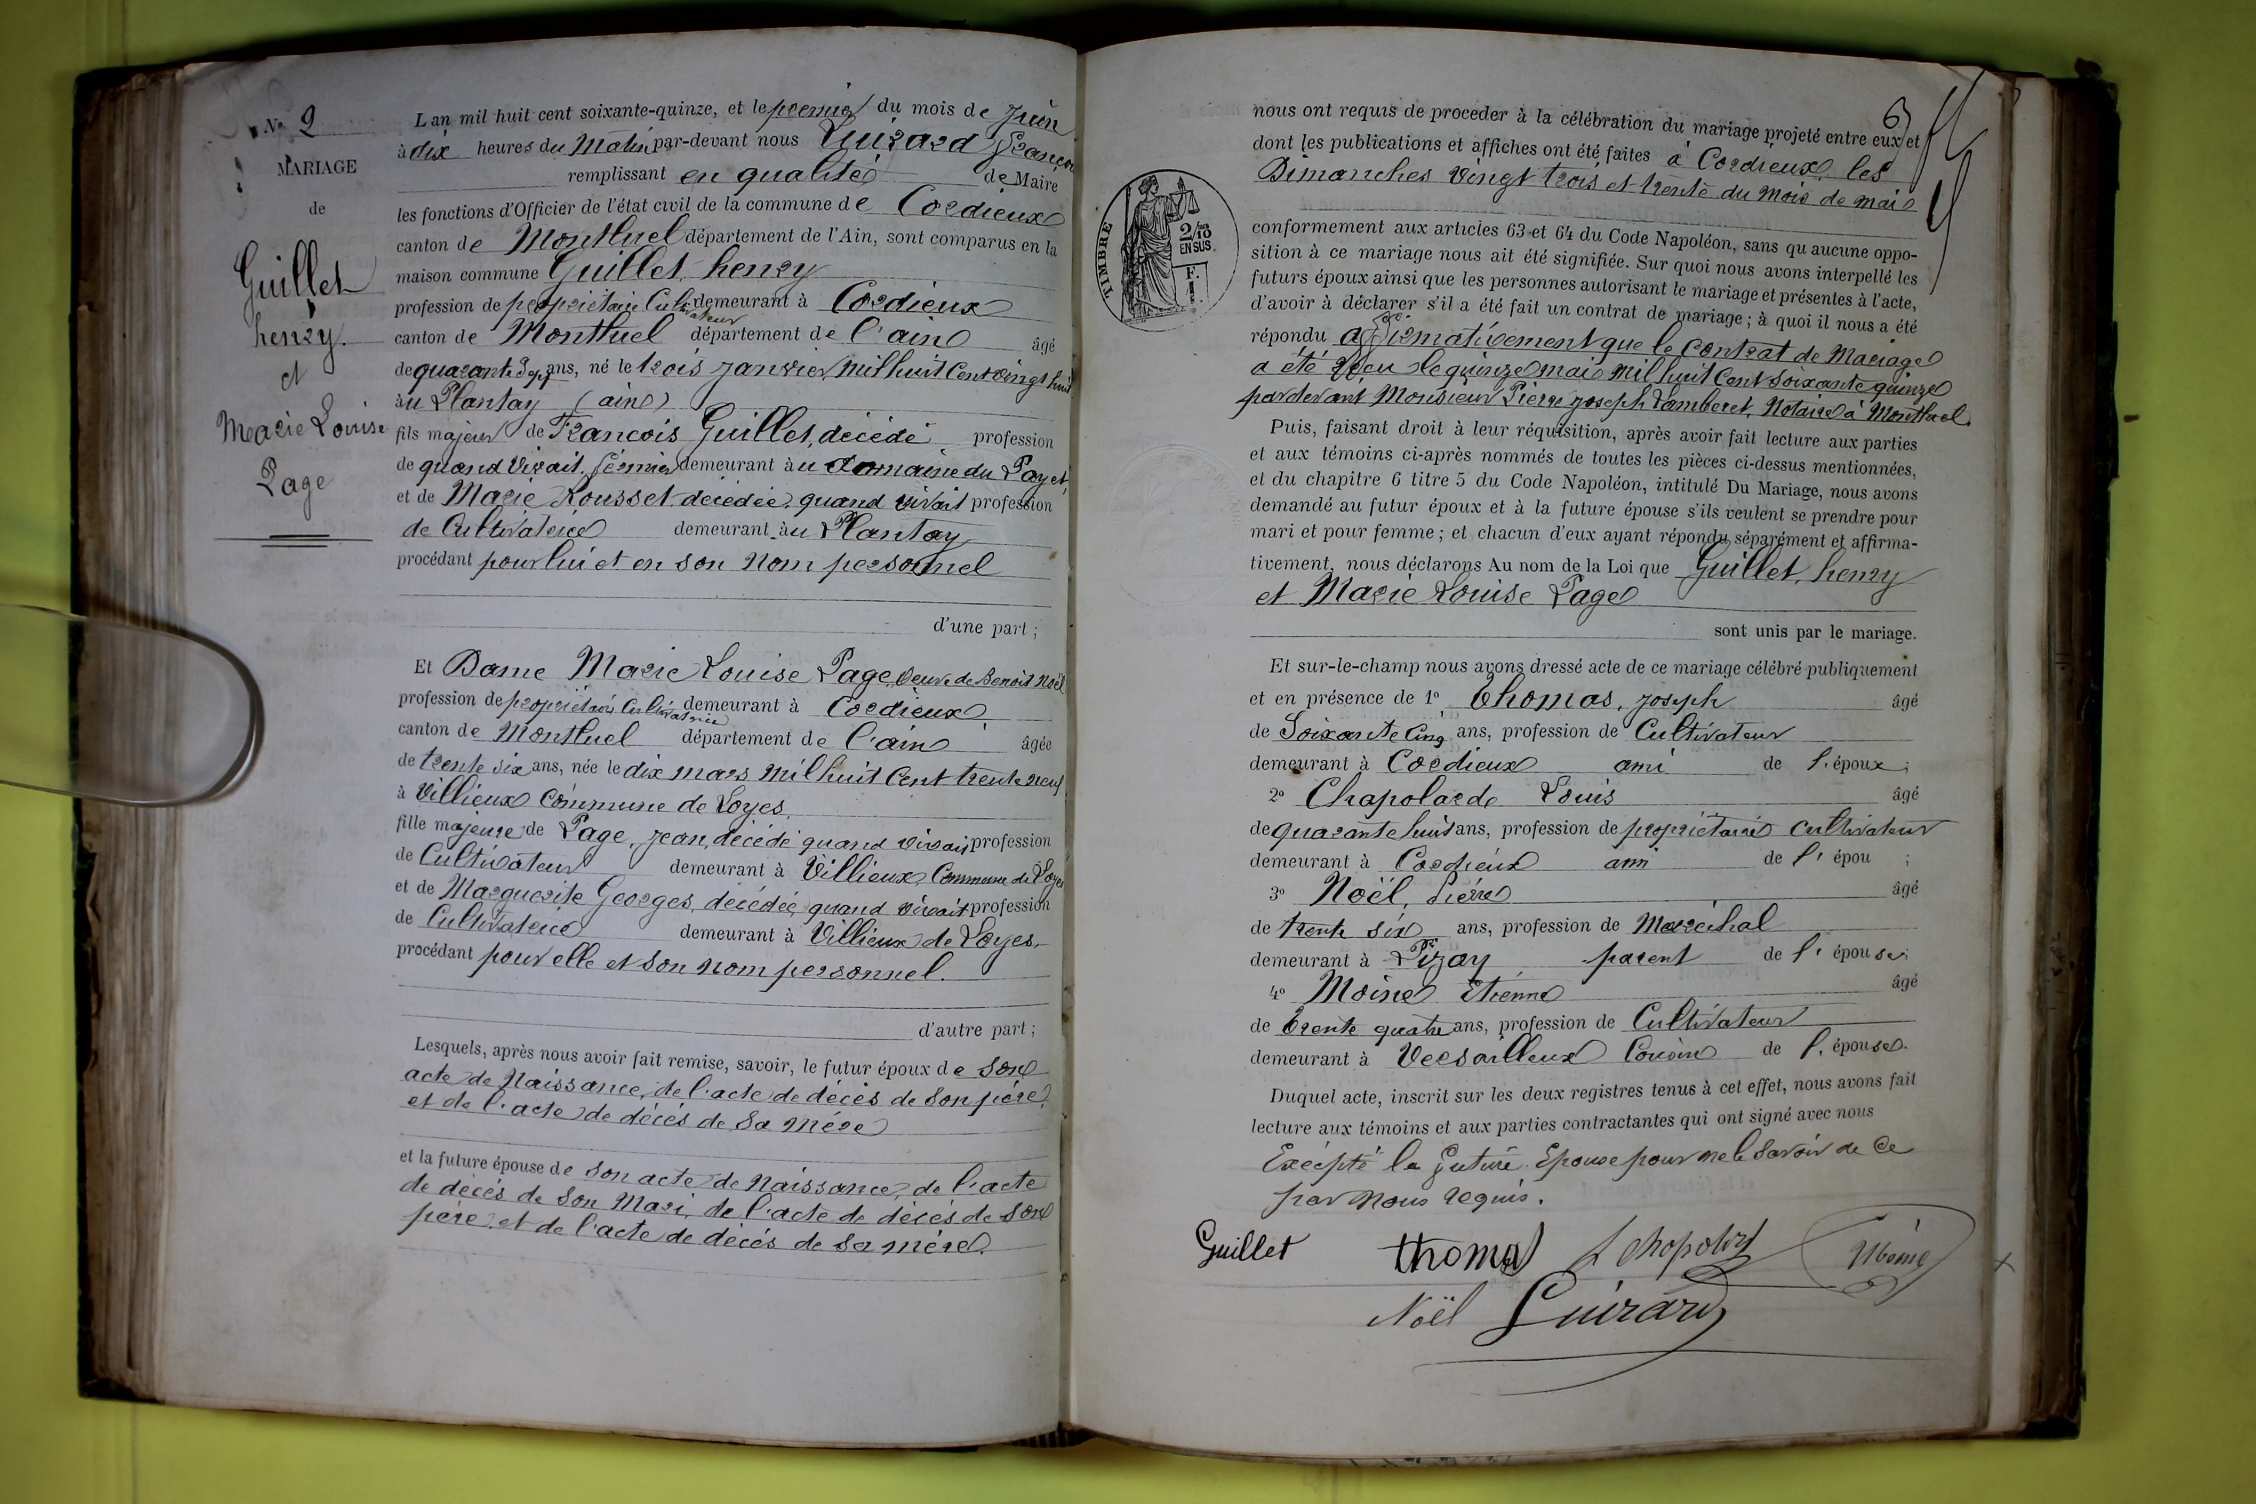 No 2
MARIAGE
de
Guillet
henry.
et
Marie Louise
Page
L'an mil huit cent soixante-quinze, et le premier du mois de Juin
à dix heures du Matin par-devant nous Guirard François
remplissant en qualité de Maire
les fonctions d'Officier de l'état civil de la commune de Cordieux
canton de Montluel département de l'Ain, sont comparus en la
maison commune Guillet, henry
profession de propriétaire Cultivateur demeurant à Cordieux
canton de Montluel département de l'ain âgé
de quarante Sept ans, né le trois Janvier mil huit Cent vingt huit
au Plantay (ain)
fils majeur de Francois Guillet, décédé profession
de quand Vivait, fermier demeurant au domaine du Payet,
et de Marie Rousset décédée, quand vivait profession
de Cultivatrice demeurant au Plantay
procédant pour lui et en son nom personnel
d'une part ;
Et Dame Marie Louise Page, Veuve de Benoit Noël
profession de propriétaire Cultivatrice demeurant à Cordieux,
canton de Montluel département de l'ain âgée
de trente six ans, née le dix mars mil huit Cent trente neuf
à Villieux Commune de Loyes,
fille majeure de Page, Jean, décédé quand vivait, profession
de Cultivateur demeurant à Villieux, Commune de Loyes
et de Marguerite Georges, décédée, quand vivait profession
de Cultivatrice demeurant à Villieux de Loyes,
procédant pour elle et son nom personnel.
d'autre part ;
Lesquels, après nous avoir fait remise, savoir, le futur époux de son
acte de Naissance, de l'acte de décès de son père,
et de l'acte de décés de sa Mére
et la future épouse de son acte de Naissance, de l'acte
de décés de son Mari, de l'acte de décés de son
père, et de l'acte de décés de sa mére.
6
nous ont requis de proceder à la célébration du mariage projeté entre eux et
dont les publications et affiches ont été faites à Cordieux, les
Dimanches vingt trois et trente du mois de mai
TIMBRE
2/10
EN SUS.
F.
conformement aux articles 63 et 64 du Code Napoléon, sans qu'aucune oppo-
sition à ce mariage nous ait été signifiée. Sur quoi nous avons interpellé les
futurs époux ainsi que les personnes autorisant le mariage et présentes à l'acte,
d'avoir à déclarer s'il a été fait un contrat de mariage ; à quoi il nous a été
répondu affirmativement que le Contrat de Mariage
a été reçu le quinze mai mil huit Cent Soixante quinze
pardevant Monsieur Pierre Joseph Lamberet, Notaire à Montluel.
Puis, faisant droit à leur réquisition, après avoir fait lecture aux parties
et aux témoins ci-après nommés de toutes les pièces ci-dessus mentionnées,
et du chapitre 6 titre 5 du Code Napoléon, intitulé Du Mariage, nous avons
demandé au futur époux et à la future épouse s'ils veulent se prendre pour
mari et pour femme ; et chacun d'eux ayant répondu séparément et affirma-
tivement, nous déclarons Au nom de la Loi que Guillet, henry
et Marie Louise Page
sont unis par le mariage.
Et sur-le-champ nous avons dressé acte de ce mariage célébré publiquement
et en présence de 1° Thomas, Joseph âgé
de Soixante Cinq ans, profession de Cultivateur
demeurant à Cordieux ami de l'époux ;
2° Chapolarde Louis âgé
de quarante huit ans, profession de propriétaire cultivateur
demeurant à Cordieux ami de l'épou ;
3° Noël, Piérre âgé
de trente six ans, profession de Maréchal
demeurant à Pizay parent de l'épouse;
4° Moine Etienne âgé
de trente quatre ans, profession de Cultivateur
demeurant à Versailleux Cousin de l'épouse.
Duquel acte, inscrit sur les deux registres tenus à cet effet, nous avons fait
lecture aux témoins et aux parties contractantes qui ont signé avec nous
Excépté la future Epouse pour ne le Savoir de Ce
par Nous requis.
Guillet thoma L chapolard Moine
Noël Guirard